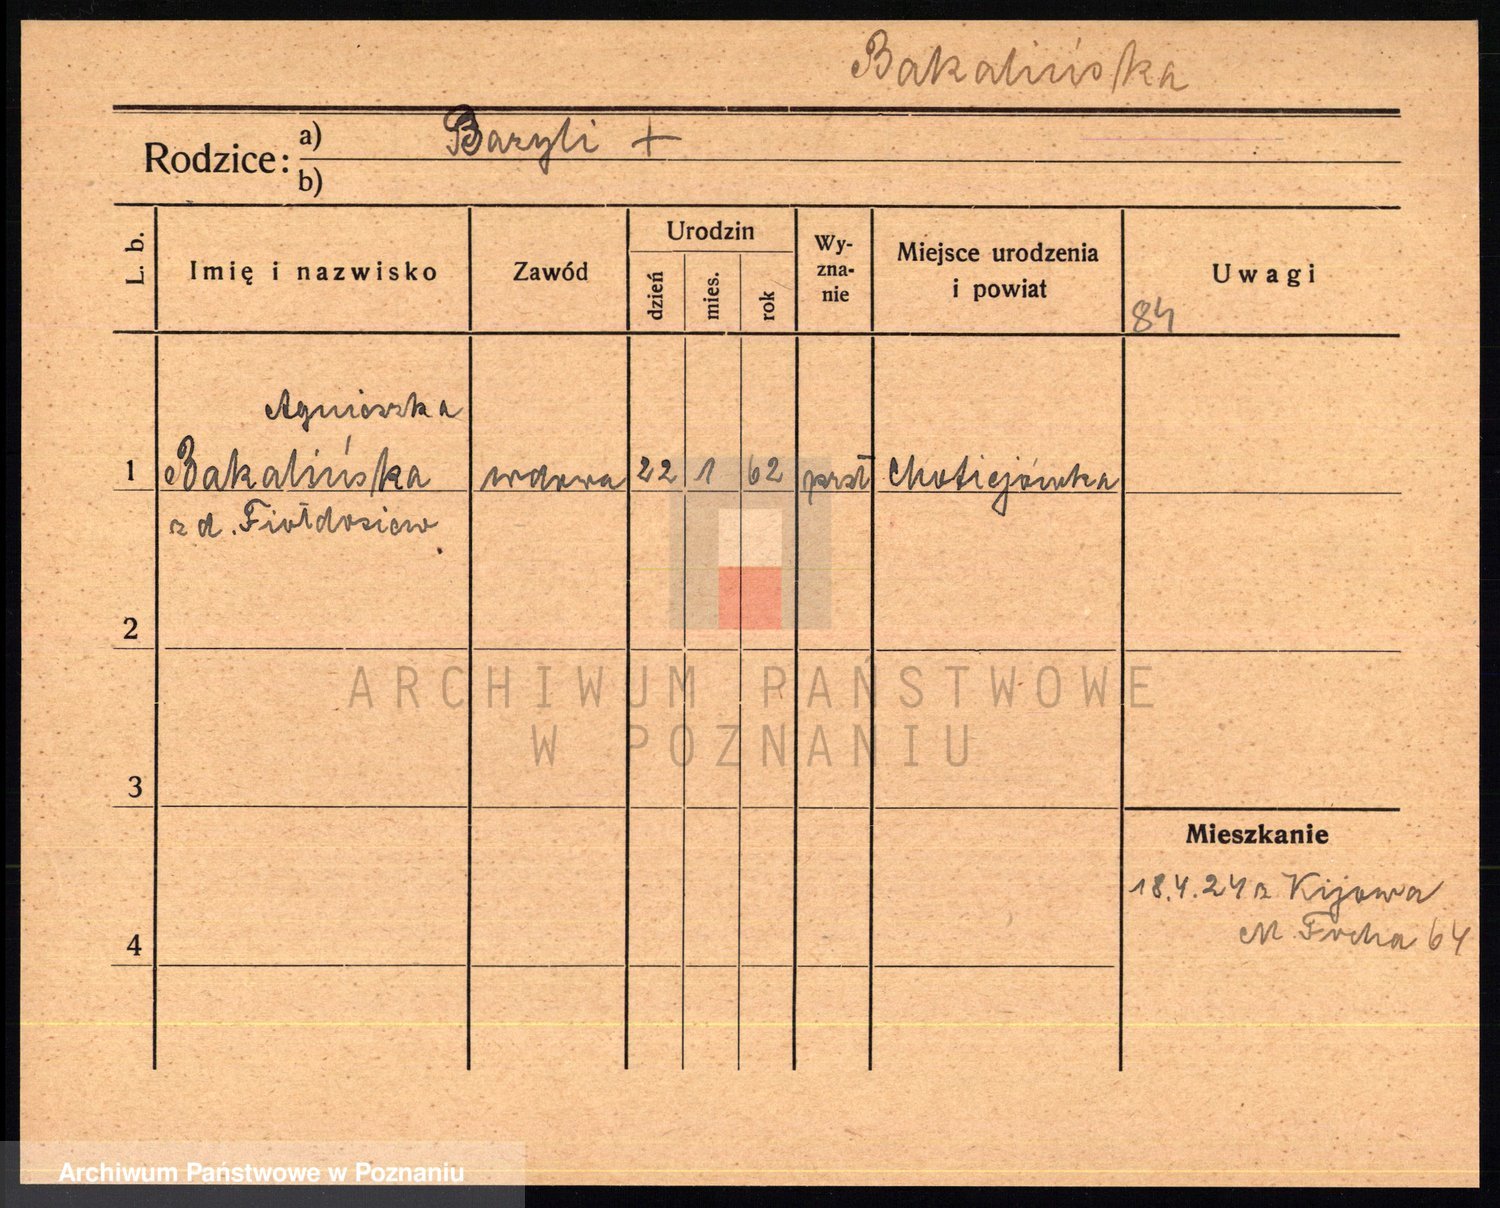 Bakalińska
Rodzice:
a) Bazyli +
b)
L. b.
Imię i nazwisko
Zawód
Urodzin
dzień
mies.
rok
Wy-
zna-
nie
Miejsce urodzenia
i powiat
Uwagi
84
Agnieszka
1 Bakalińska wdowa 22 1 62 prsł
z d.
2
3
4
Mieszkanie
18.4.24 z Kijowa
M. Focha 64
ARCHIWUM PAŃSTWOWE
W POZNANIU
Archiwum Państwowe w Poznaniu